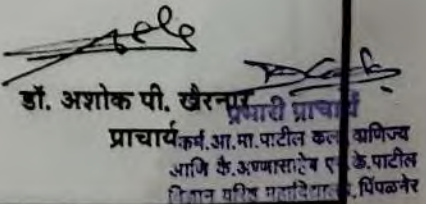 डॉ. अशोक पी. खैरनार
प्रभारी प्राचार्य
प्राचार्य
कर्म. आ. मा. पाटील कला, वाणिज्य
आणि कै. अण्णासाहेब एन. के. पाटील
विज्ञान वरिष्ठ महाविद्यालय, पिंपळनेर